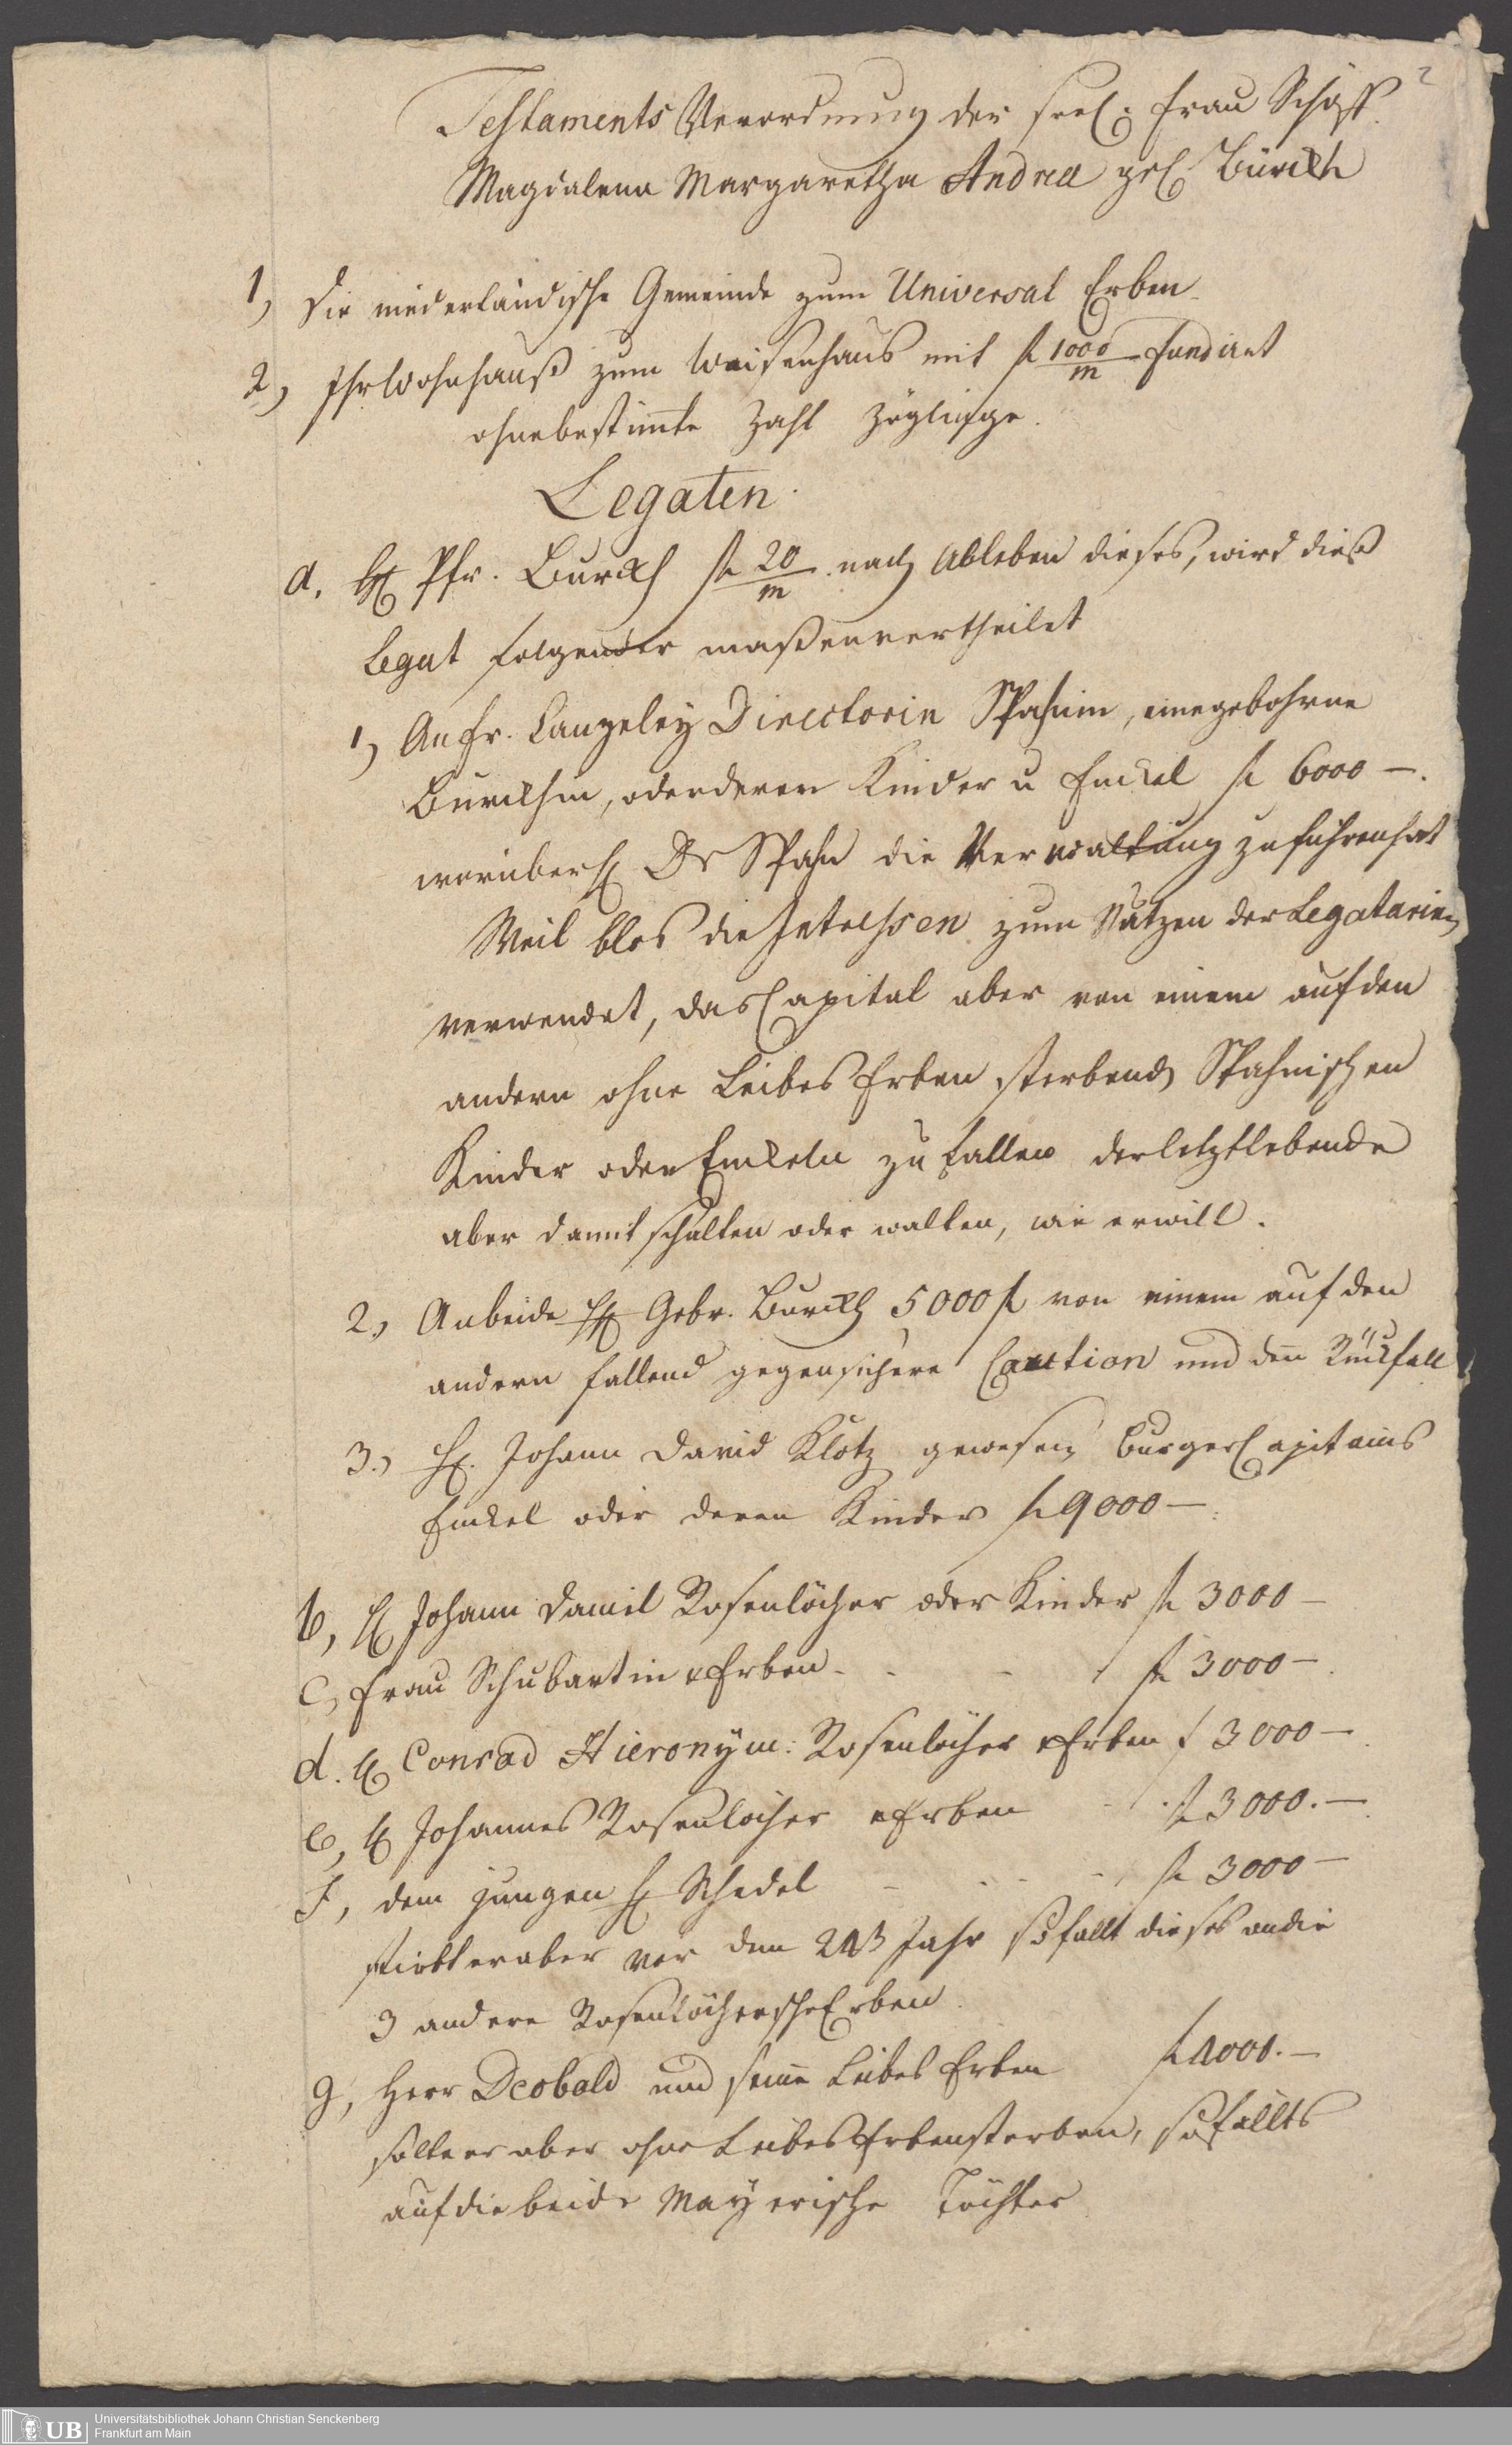 2
Testaments Verordnung der seel. Frau Schöff
Magdalena Margaretha Andreä geb Bürckh
1, Die niederländische Gemeinde zum Universal Erben
2, Ihr Wohnhauß zum Waisenhaus mit fl 1000/m fundiret
ohnebestimte Zahl Zöglinge.
Legaten.
a. H Pfr. Burckh fl 20/m nach Ableben dieses, wird dieß
Legat folgender maßen vertheilet
1, An Fr. Canzeley Directorin Spahnin, eine gebohrne
Burckhin, oder deren Kinder u Enckel fl 6000 –.
worüber H Dr Spahn die Verwaltung zu führen hat
Weil blos die Intressen zum Nutzen der Legatarien
verwendet, das Capital aber von einem auf den
andern ohne Leibes Erben sterbend Spahnischen
Kinder oder Enckeln zu fallen der letztlebende
aber damit schalten oder walten, wie er will.
2, An beide HH Gebr. Burckh 5000 fl von einem auf den
andern fallend gegen sichere Caution und den Rückfall
3., H. Johann David Klotz gewesen Burger Capitains
Enckel oder deren Kinder fl 9000 –
b, H Johann Daniel Rosenlöcher oder Kinder fl 3000 –
C, Frau Schubartin Erben - - - fl 3000 –
d. H Conrad Hieronym: Rosenlöcher Erben f 3000 –
e, H Johannes Rosenlöcher Erben fl 3000. –
f, dem jungen H Schedel - - - fl 3000 –
stirbt er aber vor dem Jahr so fällt dieses an die
3 andere Rosenlöchersche Erben
g, Herr Deobald und seine Leibes Erben fl 1000. –
sollte er aber ohne Leibes Erben sterben, so fällts
auf die beide Mayerische Töchter
UB Universitätsbibliothek Johann Christian Senckenberg
Frankfurt am Main